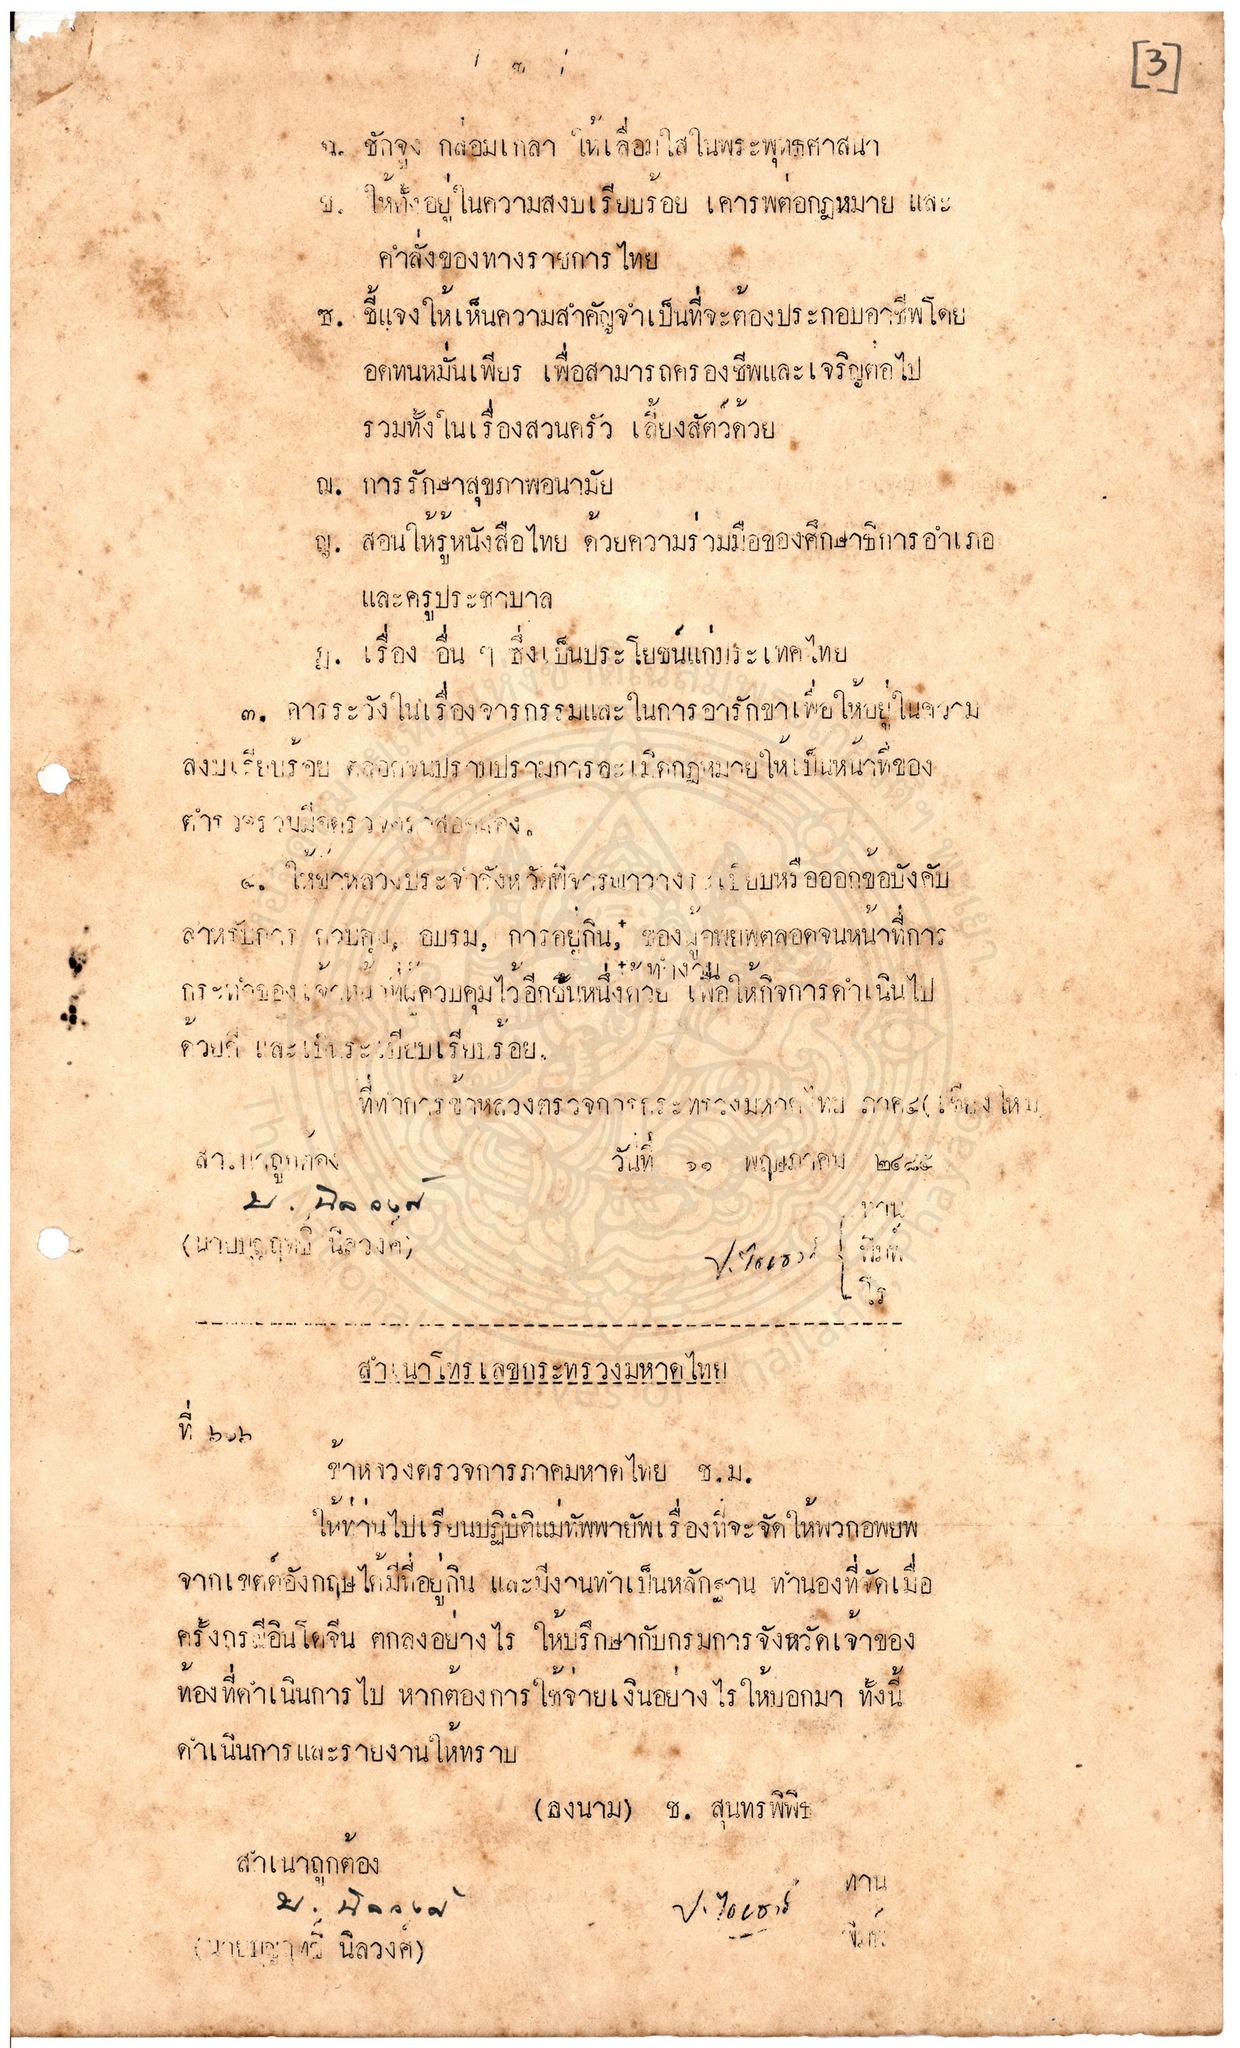 [3]
ฉ. ชักจูง กล่อมเกลา ให้เลื่อมใสในพระพุทธศาสนา
ช. ให้ตั้งอยู่ในความสงบเรียบร้อย เคารพต่อกฎหมาย และ
คำสั่งของทางราชการไทย
ซ. ชี้แจงให้เห็นความสำคัญจำเป็นที่จะต้องประกอบอาชีพโดย
อดทนหมั่นเพียร เพื่อสามารถครองชีพและเจริญต่อไป
รวมทั้งในเรื่องสวนครัว เลี้ยงสัตว์ด้วย
ฌ. การรักษาสุขภาพอนามัย
ญ. สอนให้รู้หนังสือไทย ด้วยความร่วมมือของศึกษาธิการอำเภอ
และครูประชาบาล
ฎ. เรื่อง อื่น ๆ ซึ่งเป็นประโยชน์แก่ประเทศไทย
๓. การระวังในเรื่องจารกรรมและในการอารักขาเพื่อให้อยู่ในความ
สงบเรียบร้อย ตลอดจนปราบปรามการละเมิดกฎหมายให้เป็นหน้าที่ของ
ตำรวจ
๔. ให้ข้าหลวงประจำจังหวัดพิจารณาวางระเบียบหรือออกข้อบังคับ
สำหรับการ ควบคุม, อบรม, การอยู่กิน, ของผู้อพยพตลอดจนหน้าที่การ
ทำงาน
กระทำของเจ้าหน้าที่ผู้ควบคุมไว้อีกชั้นหนึ่งด้วย เพื่อให้กิจการดำเนินไป
ด้วยดี และเป็นระเบียบเรียบร้อย.
ที่ทำการข้าหลวงตรวจการกระทรวงมหาดไทย ภาค๔(เชียงใหม่)
สำเนาถูกต้อง วันที่ ๑๑ พฤษภาคม ๒๔๘๕
บ. นิลวงศ์ ทาน
(นายบุญฤทธิ์ นิลวงศ์) พิมพ์
สำเนาโทรเลขกระทรวงมหาดไทย
ที่
ข้าหลวงตรวจการภาคมหาดไทย ช.ม.
ให้ท่านไปเรียนปฏิบัติแม่ทัพพายัพเรื่องที่จะจัดให้พวกอพยพ
จากเขตต์อังกฤษได้มีที่อยู่กิน และมีงานทำเป็นหลักฐาน ทำนองที่จัดเมื่อ
ครั้งกรณีอินโดจีน ตกลงอย่างไร ให้ปรึกษากับกรมการจังหวัดเจ้าของ
ท้องที่ดำเนินการไป หากต้องการใช้จ่ายเงินอย่างไรให้บอกมา ทั้งนี้
ดำเนินการและรายงานให้ทราบ
(ลงนาม) ช. สุนทรพิพิธ
สำเนาถูกต้อง ทาน
บ. นิลวงศ์ พิมพ์
(นายบุญฤทธิ์ นิลวงศ์)